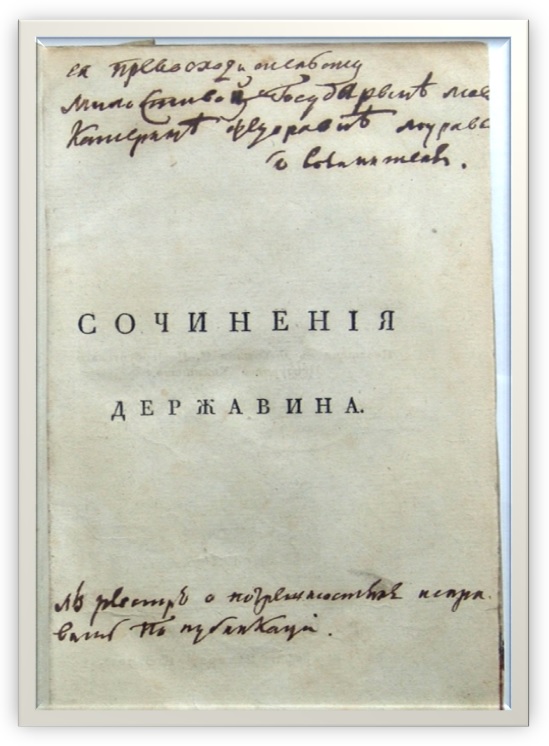 ея превосходительству
милостивой Государынѣ мое
Катеринѣ Федоравнѣ мурав
СОЧИНЕНІЯ
ДЕРЖАВИНА.
реестръ о погрешностях испра-
вить по публикаціи.